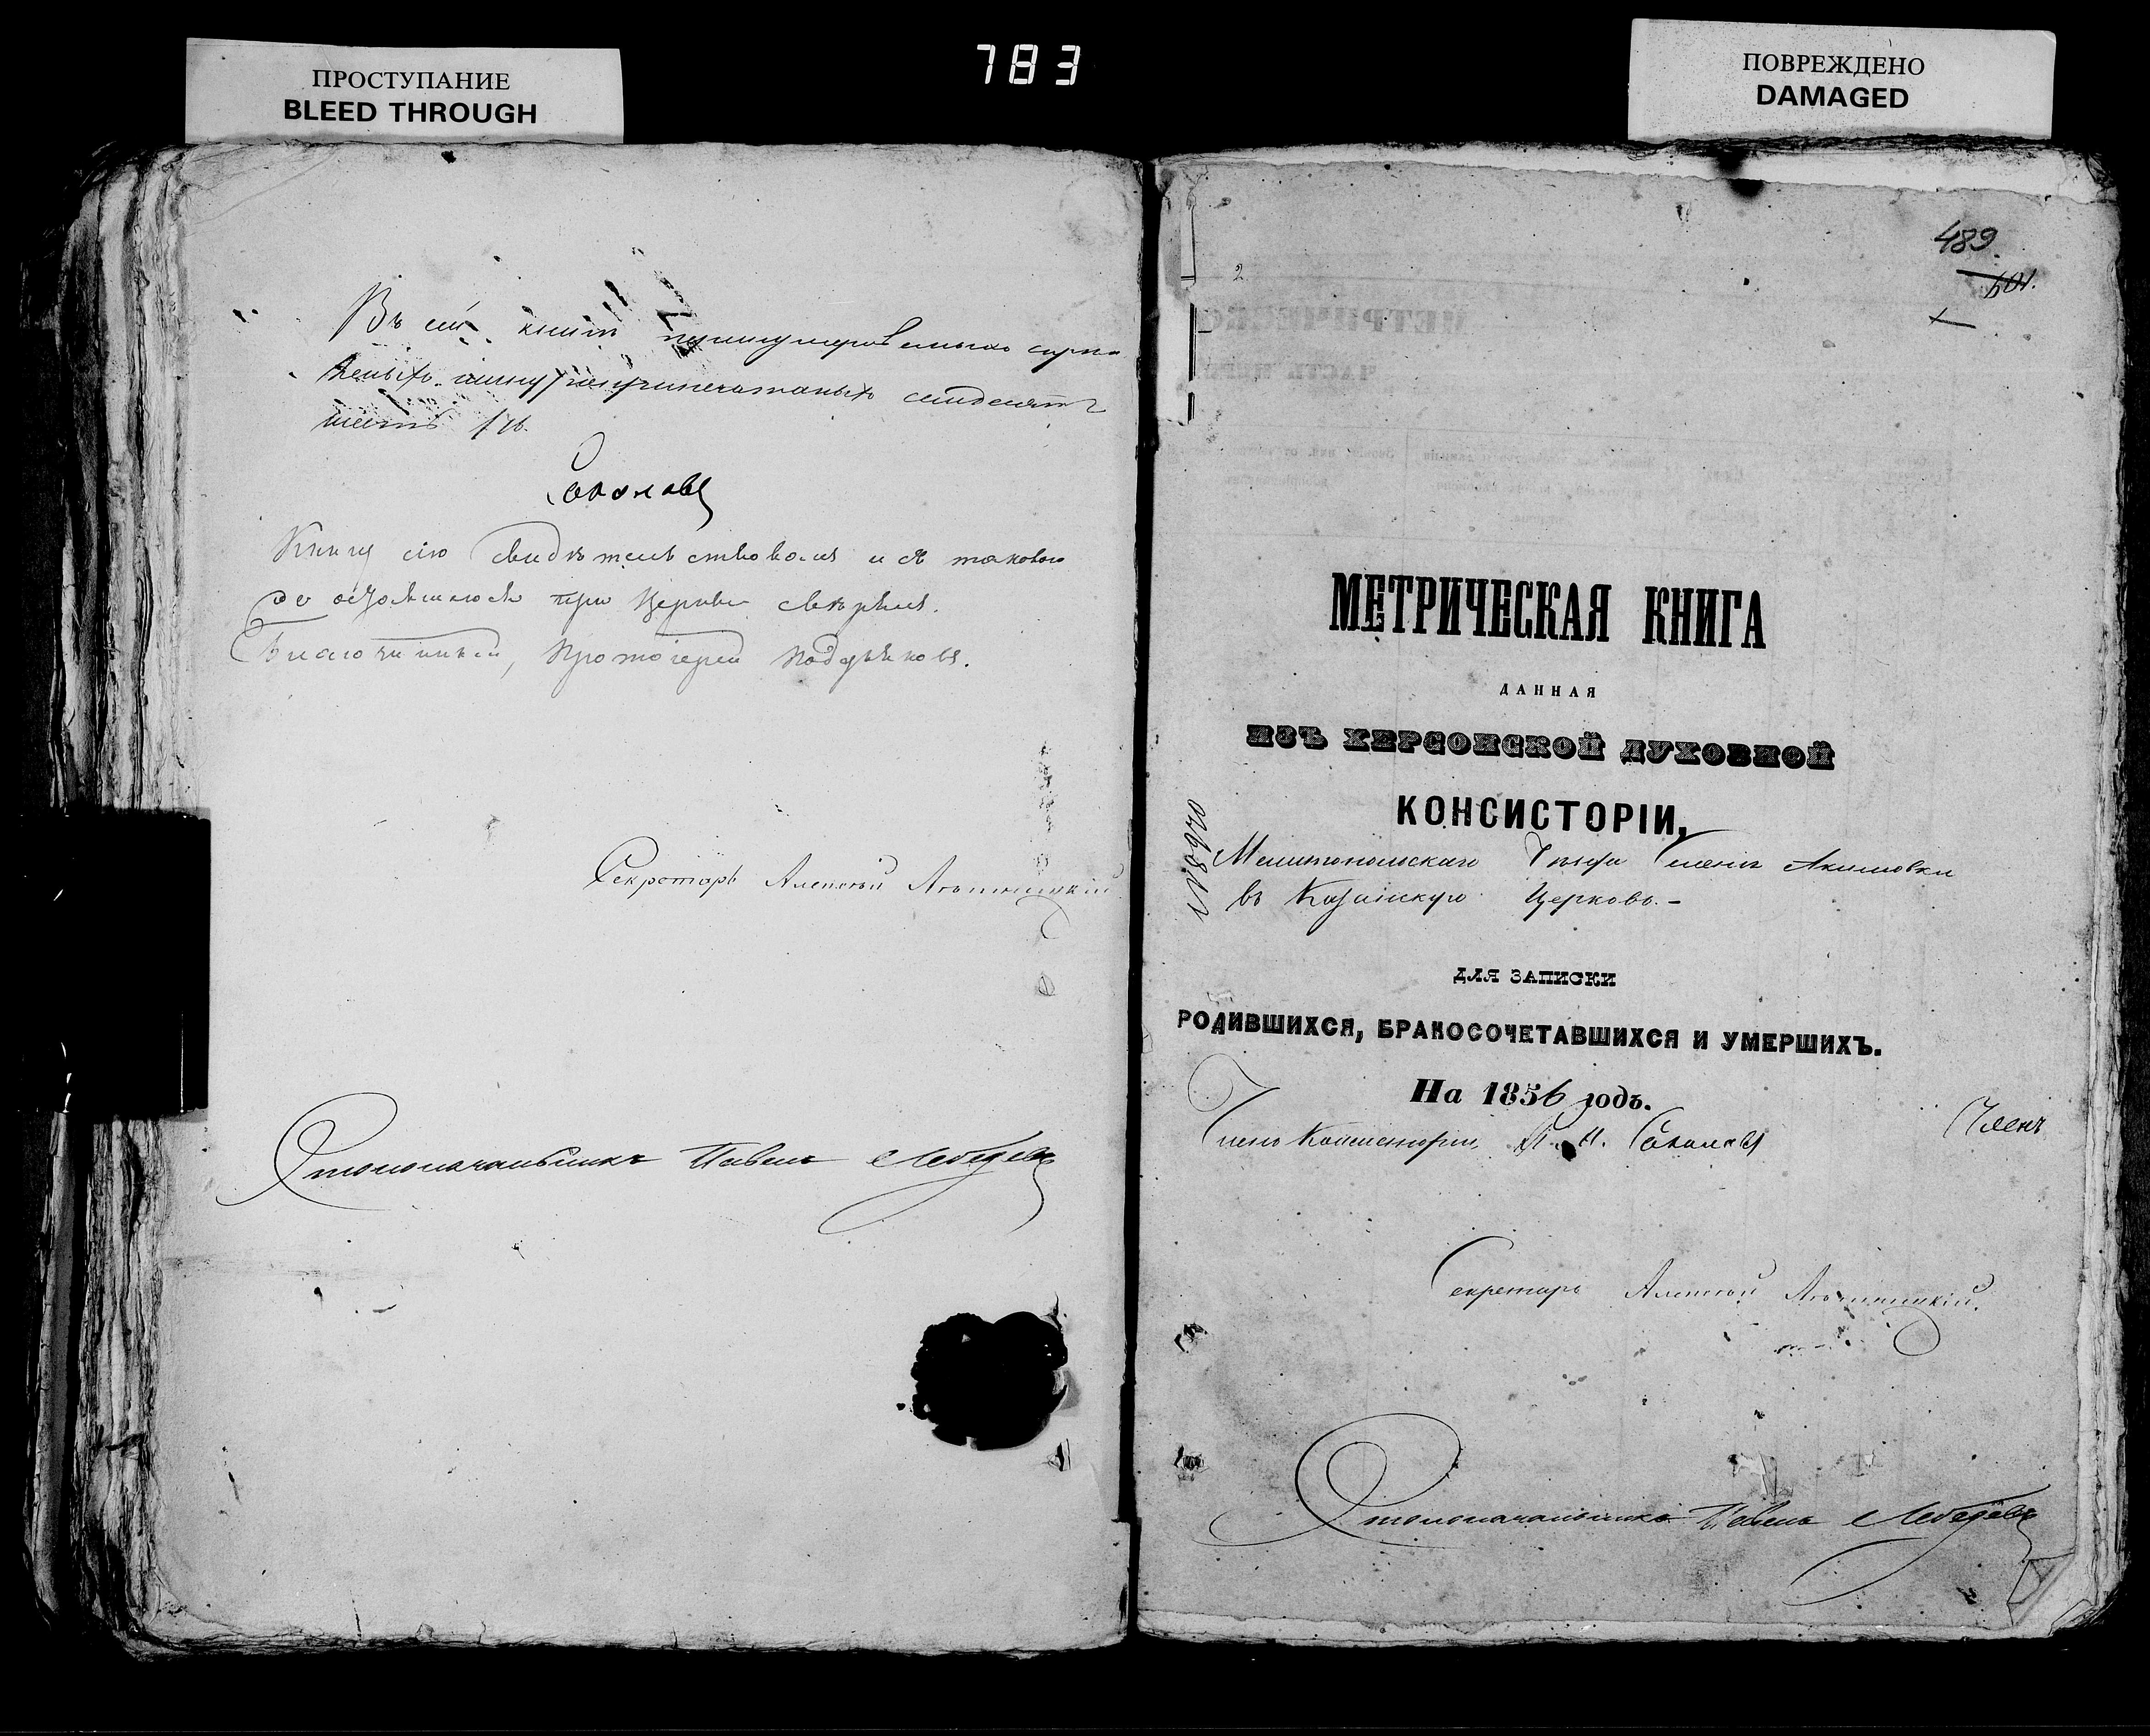 783
ПРОСТУПАНИЕ
BLEED THROUGH
ПОВРЕЖДЕНО
DAMAGED
Въ сей книгѣ пронумерованныхъ скрѣп
ленныхъ припечатанныхъ семдесятъ
шесть 76.
Соколовъ
Книгу сію свидѣтельствовалъ и съ таковою
же оставшеюся при Церкви свѣрялъ.
Благочинный, Протоіерей
Секретарь Алексѣй
Столоначальникъ Павелъ Лебедевъ
489.
601.
2
МЕТРИЧЕСКАЯ КНИГА
ДАННАЯ
ИЗЪ ХЕРСОНСКОЙ ДУХОВНОЙ
КОНСИСТОРІИ,
Мелитопольскаго Уѣзда Селенія Акимовки
въ Казанскую Церковь.-
ДЛЯ ЗАПИСКИ
РОДИВШИХСЯ, БРАКОСОЧЕТАВШИХСЯ И УМЕРШИХЪ.
На 1856 годъ.
Членъ Консисторіи, П. И. Соколовъ
Членъ
Секретарь Алексѣй
Столоначальникъ Павелъ Лебедевъ